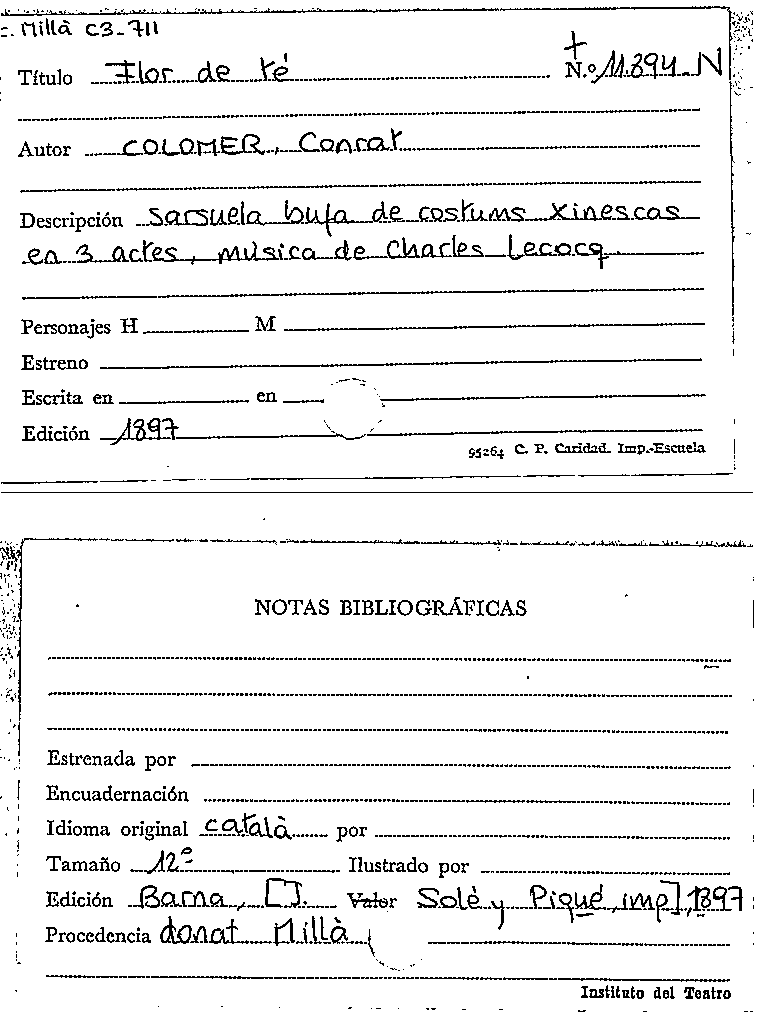 c. Millà C3-711
Título Flor de té N.º 11.894-N
Autor COLOMER, Conrat
Descripción Sarsuela bufa de costums xinescas
en 3 actes, música de Charles Lecocq
Personajes H M
Estreno
Escrita en en
Edición 1897
95264 C. P. Caridad. Imp.-Escuela
NOTAS BIBLIOGRÁFICAS
Estrenada por
Encuadernación
Idioma original català por
Tamaño 12º Ilustrado por
Edición Barna, [J. Valor Solé y Piqué, imp], 1897
Procedencia donat Millà
Instituto del Teatro